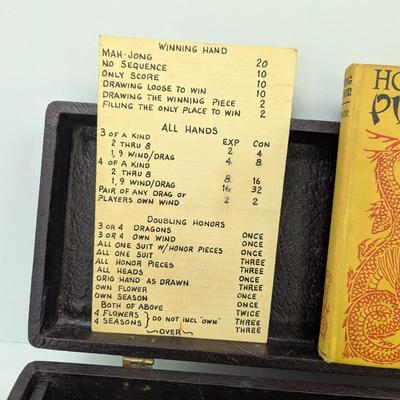 WINNING HAND
MAH-JONG 20
NO SEQUENCE 10
ONLY SCORE 10
DRAWING LOOSE TO WIN 10
DRAWING THE WINNING PIECE 2
FILLING THE ONLY PLACE TO WIN 2
ALL HANDS
3 OF A KIND EXP CON
2 THRU 8 2 4
1, 9 WIND/DRAG 4 8
4 OF A KIND
2 THRU 8 8 16
1, 9 WIND/DRAG 16 32
PAIR OF ANY DRAG OR
PLAYERS OWN WIND 2 2
DOUBLING HONORS
3 OR 4 DRAGONS ONCE
3 OR 4 OWN WIND ONCE
ALL ONE SUIT W/HONOR PIECES ONCE
ALL ONE SUIT THREE
ALL HONOR PIECES THREE
ALL HEADS THREE
ORIG HAND AS DRAWN ONCE
OWN FLOWER ONCE
OWN SEASON ONCE
BOTH OF ABOVE TWICE
4 FLOWERS } DO NOT INCL "OWN" THREE
4 SEASONS THREE
~OVER~ THREE
HO